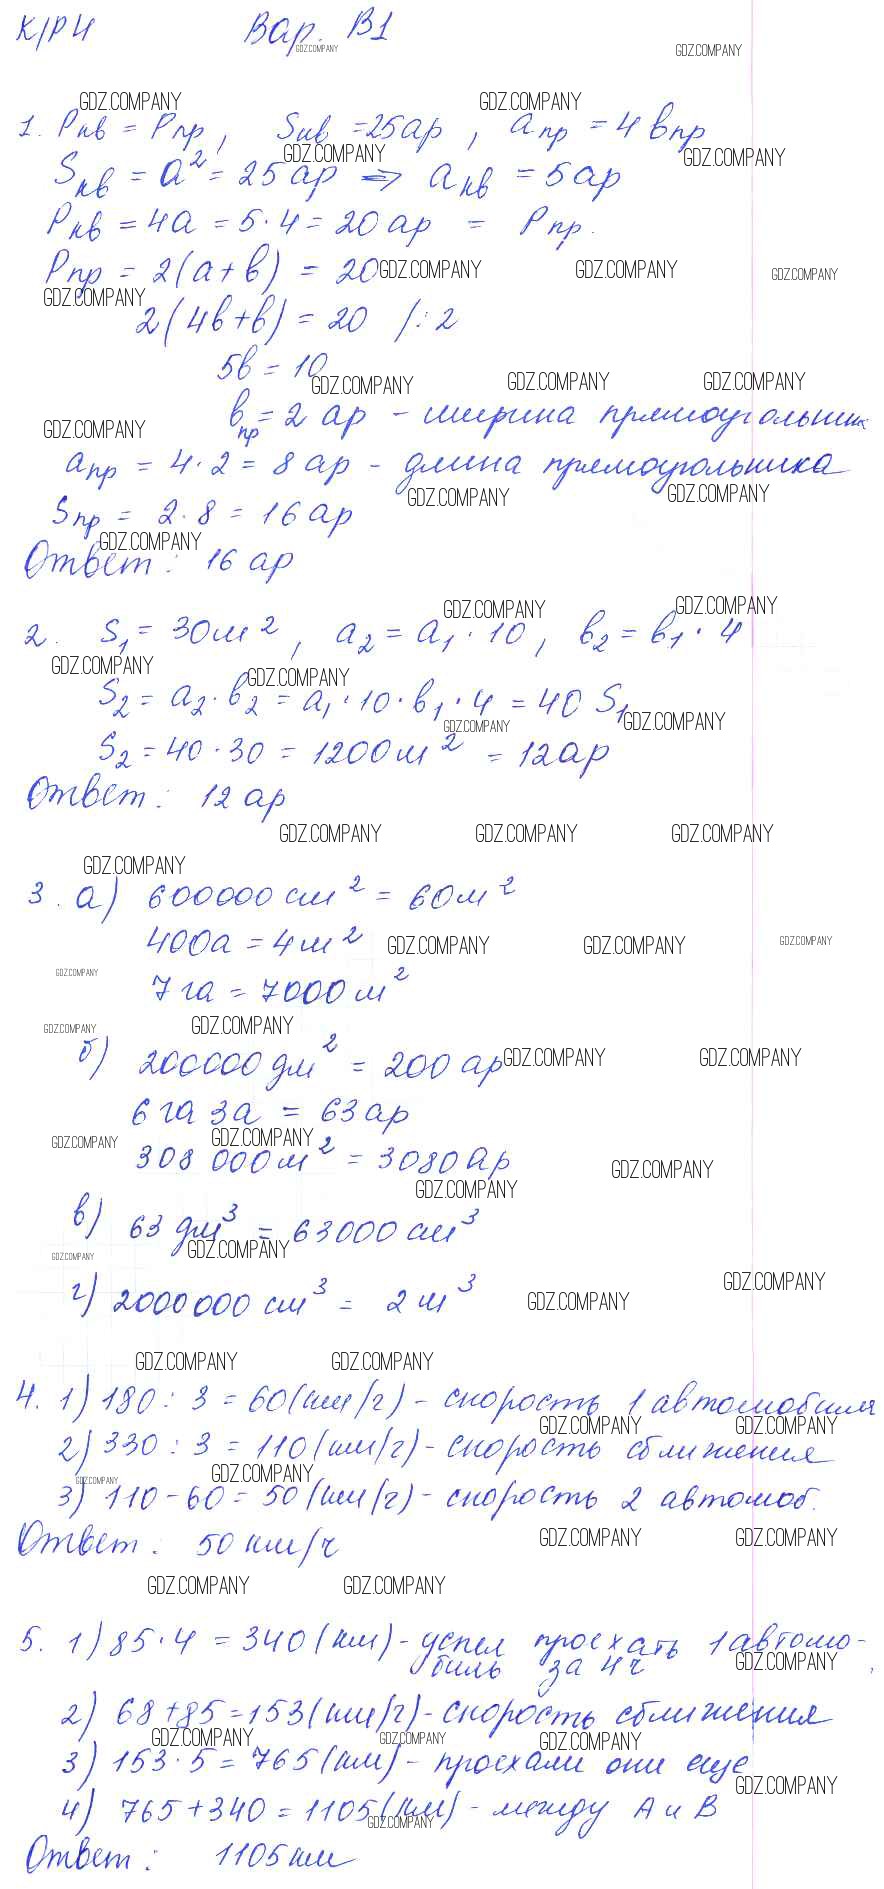 К/Р4 Вар. В1
1. Pкв = Pпр, Sкв = 25 ар, aпр = 4 bпр
Sкв = a² = 25 ар ⇒ aкв = 5 ар
Pкв = 4a = 5 · 4 = 20 ар = Pпр.
Pпр = 2(a+b) = 20
2(4b+b) = 20 /:2
5b = 10
bпр = 2 ар - ширина прямоугольник
aпр = 4 · 2 = 8 ар - длина прямоугольника
Sпр = 2 · 8 = 16 ар
Ответ: 16 ар
2. S₁ = 30 м², a₂ = a₁ · 10, b₂ = b₁ · 4
S₂ = a₂ · b₂ = a₁ · 10 · b₁ · 4 = 40 S₁
S₂ = 40 · 30 = 1200 м² = 12 ар
Ответ: 12 ар
3. а) 600000 см² = 60 м²
400а = 4 м²
7 га = 7000 м²
б) 200000 дм² = 200 ар
6 га 3а = 63 ар
308 000 м² = 3080 ар
в) 63 дм³ = 63000 см³
г) 2000000 см³ = 2 м³
4. 1) 180 : 3 = 60 (км/ч) - скорость 1 автомобиля
2) 330 : 3 = 110 (км/ч) - скорость сближения
3) 110 - 60 = 50 (км/ч) - скорость 2 автомоб.
Ответ: 50 км/ч
5. 1) 85 · 4 = 340 (км) - успел проехать 1 автомо-
биль за 4ч
2) 68 + 85 = 153 (км/ч) - скорость сближения
3) 153 · 5 = 765 (км) - проехали они еще
4) 765 + 340 = 1105 (км) - между А и В
Ответ: 1105 км